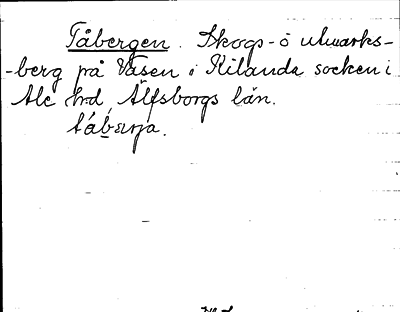 Tåbergen. Skogs- o utmarks-
-berg på Våsen i Kilanda socken i
Ale hd, Älfsborgs län.
tábærja.